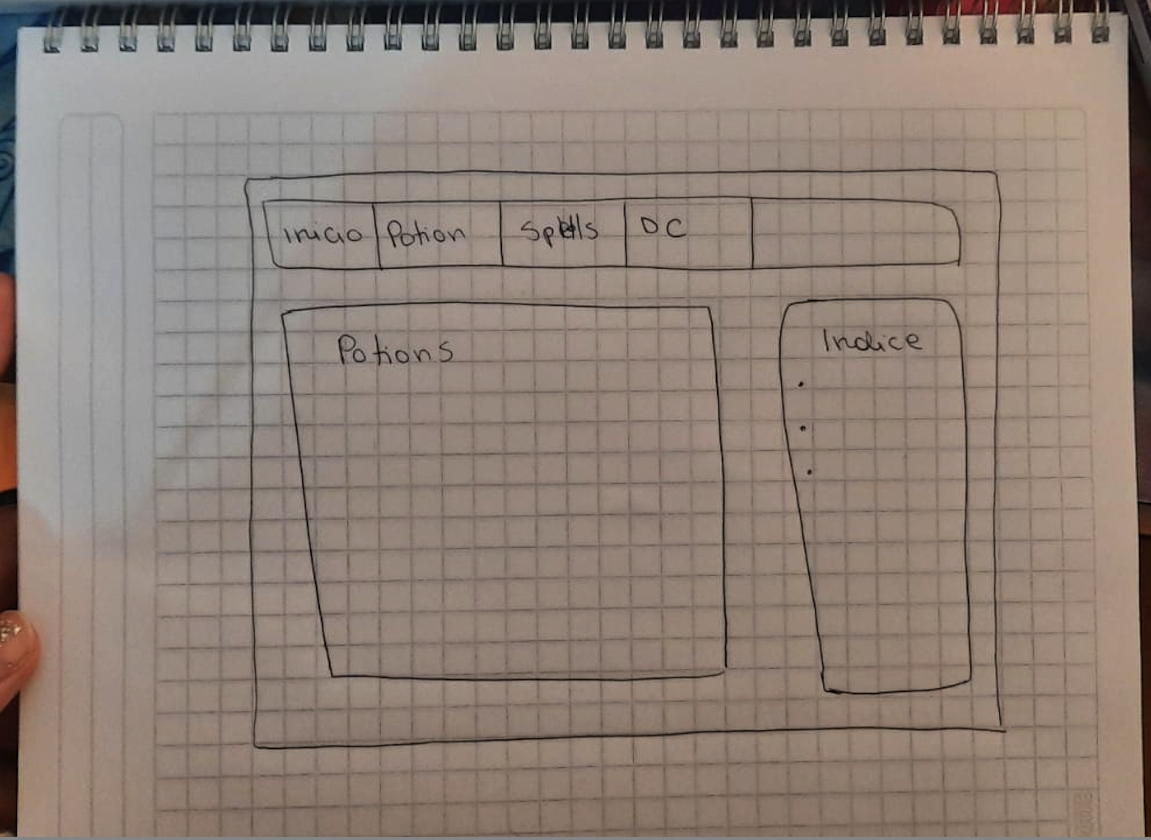 inicio Potion Spells DC
Potions
Indice